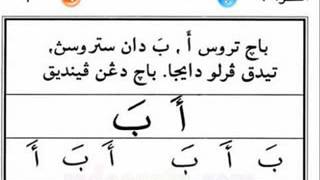 باچ تروس أَ , بَ دان ستروسڽ,
تيدق ڤرلو دايجا. باچ دڠن ڤينديق
أَ بَ
بَ أَ بَ أَ بَ أَ